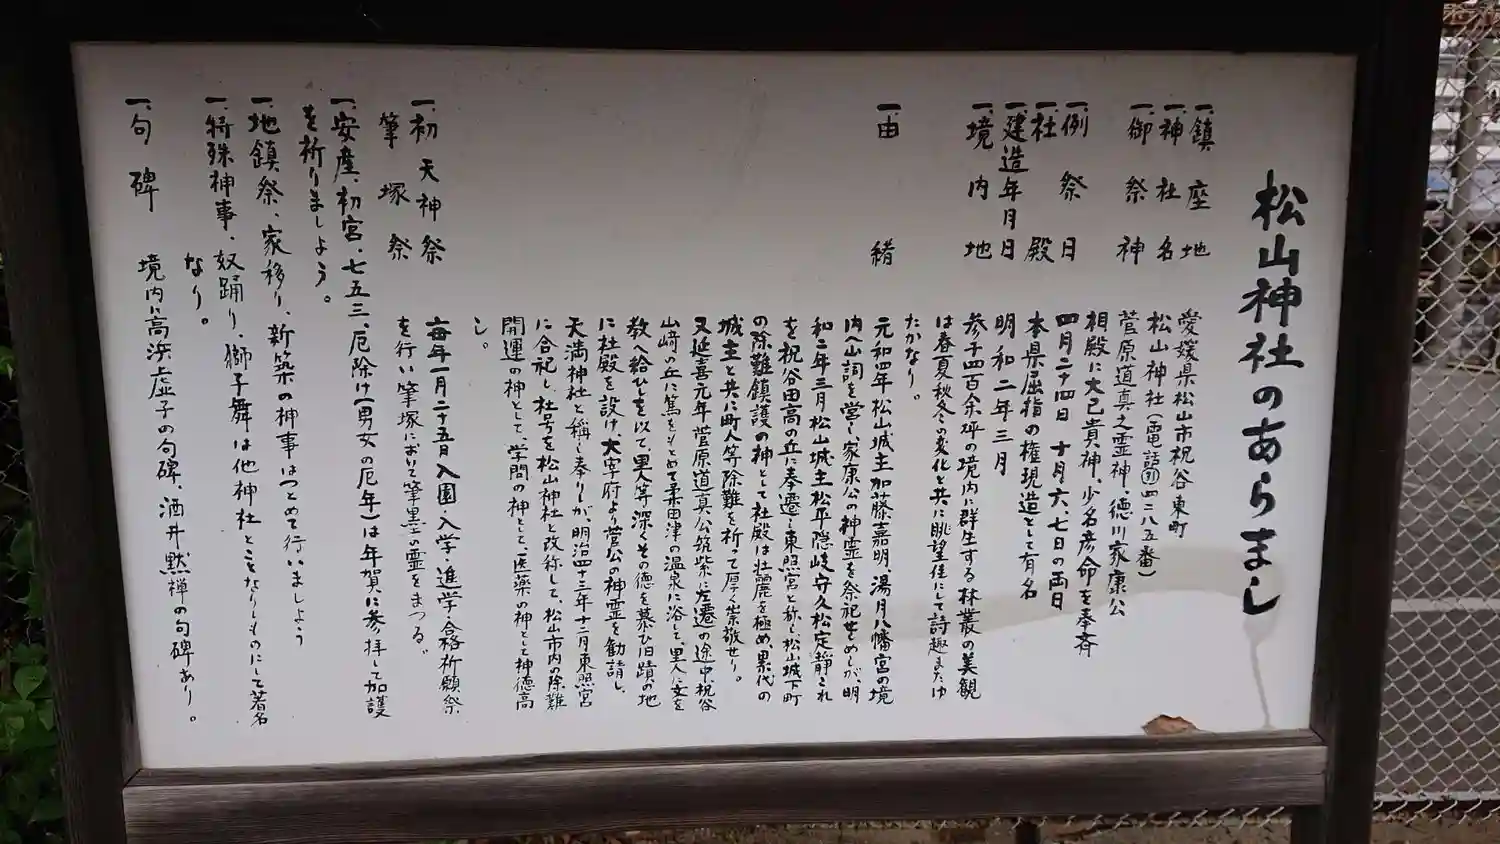 松山神社のあらまし
一、鎮座地 愛媛県松山市祝谷東町
一、神社名 松山神社(電話 四一二八五番)
一、御祭神 菅原道真之霊神、徳川家康公
相殿に大己貴神、少名彦命を奉斉
一、例祭日 四月二十四日 十月六、七日の両日
一、社殿 本県屈指の権現造として有名
一、建造年月日 明和二年三月
一、境内地 参千四百余坪の境内に群生する林叢の美観
は春夏秋冬の変化と共に眺望佳にして詩趣またゆ
たかなり。
一、由緒 元和四年松山城主加藤嘉明、湯月八幡宮の境
内へ山詞を営し、家康公の神霊を祭祀せをめしが、明
和二年三月松山城主松平隠岐守久松定静これ
を祝谷田高の丘に奉遷し東照宮と称し松山城下町
の除難鎮護の神として社殿は壮麗を極め、累代の
城主と共に町人等除難を祈って厚く崇敬せり。
又延喜元年菅原道真公筑紫に左遷の途中祝谷
山崎の丘に篤をもとめて柔田津の温泉に浴して里人に文を
教へ給ひしを以て里人等深くその徳を慕ひ旧蹟の地
に社殿を設け大宰府より菅公の神霊を勧請し、
天満神社と称し奉りしが、明治四十三年十二月東照宮
に合祀し、社号を松山神社と改称して、松山市内の除難
開運の神として、学問の神として、医薬の神として神徳高
し。
一、初天神祭 毎年一月二十五日入園・入学・進学・合格祈願祭
筆塚祭 を行い筆塚において筆墨の霊をまつる。
一、安産、初宮、七五三、厄除け(男女の厄年)は年賀に参拝して加護
を祈りましよう。
一、地鎮祭、家移り、新築の神事はつとめて行いましよう
一、特殊神事、奴踊り、獅子舞は他神社とことなりしものにして著名
なり。
一、句碑 境内に高浜虚子の句碑、酒井黙禅の句碑あり。